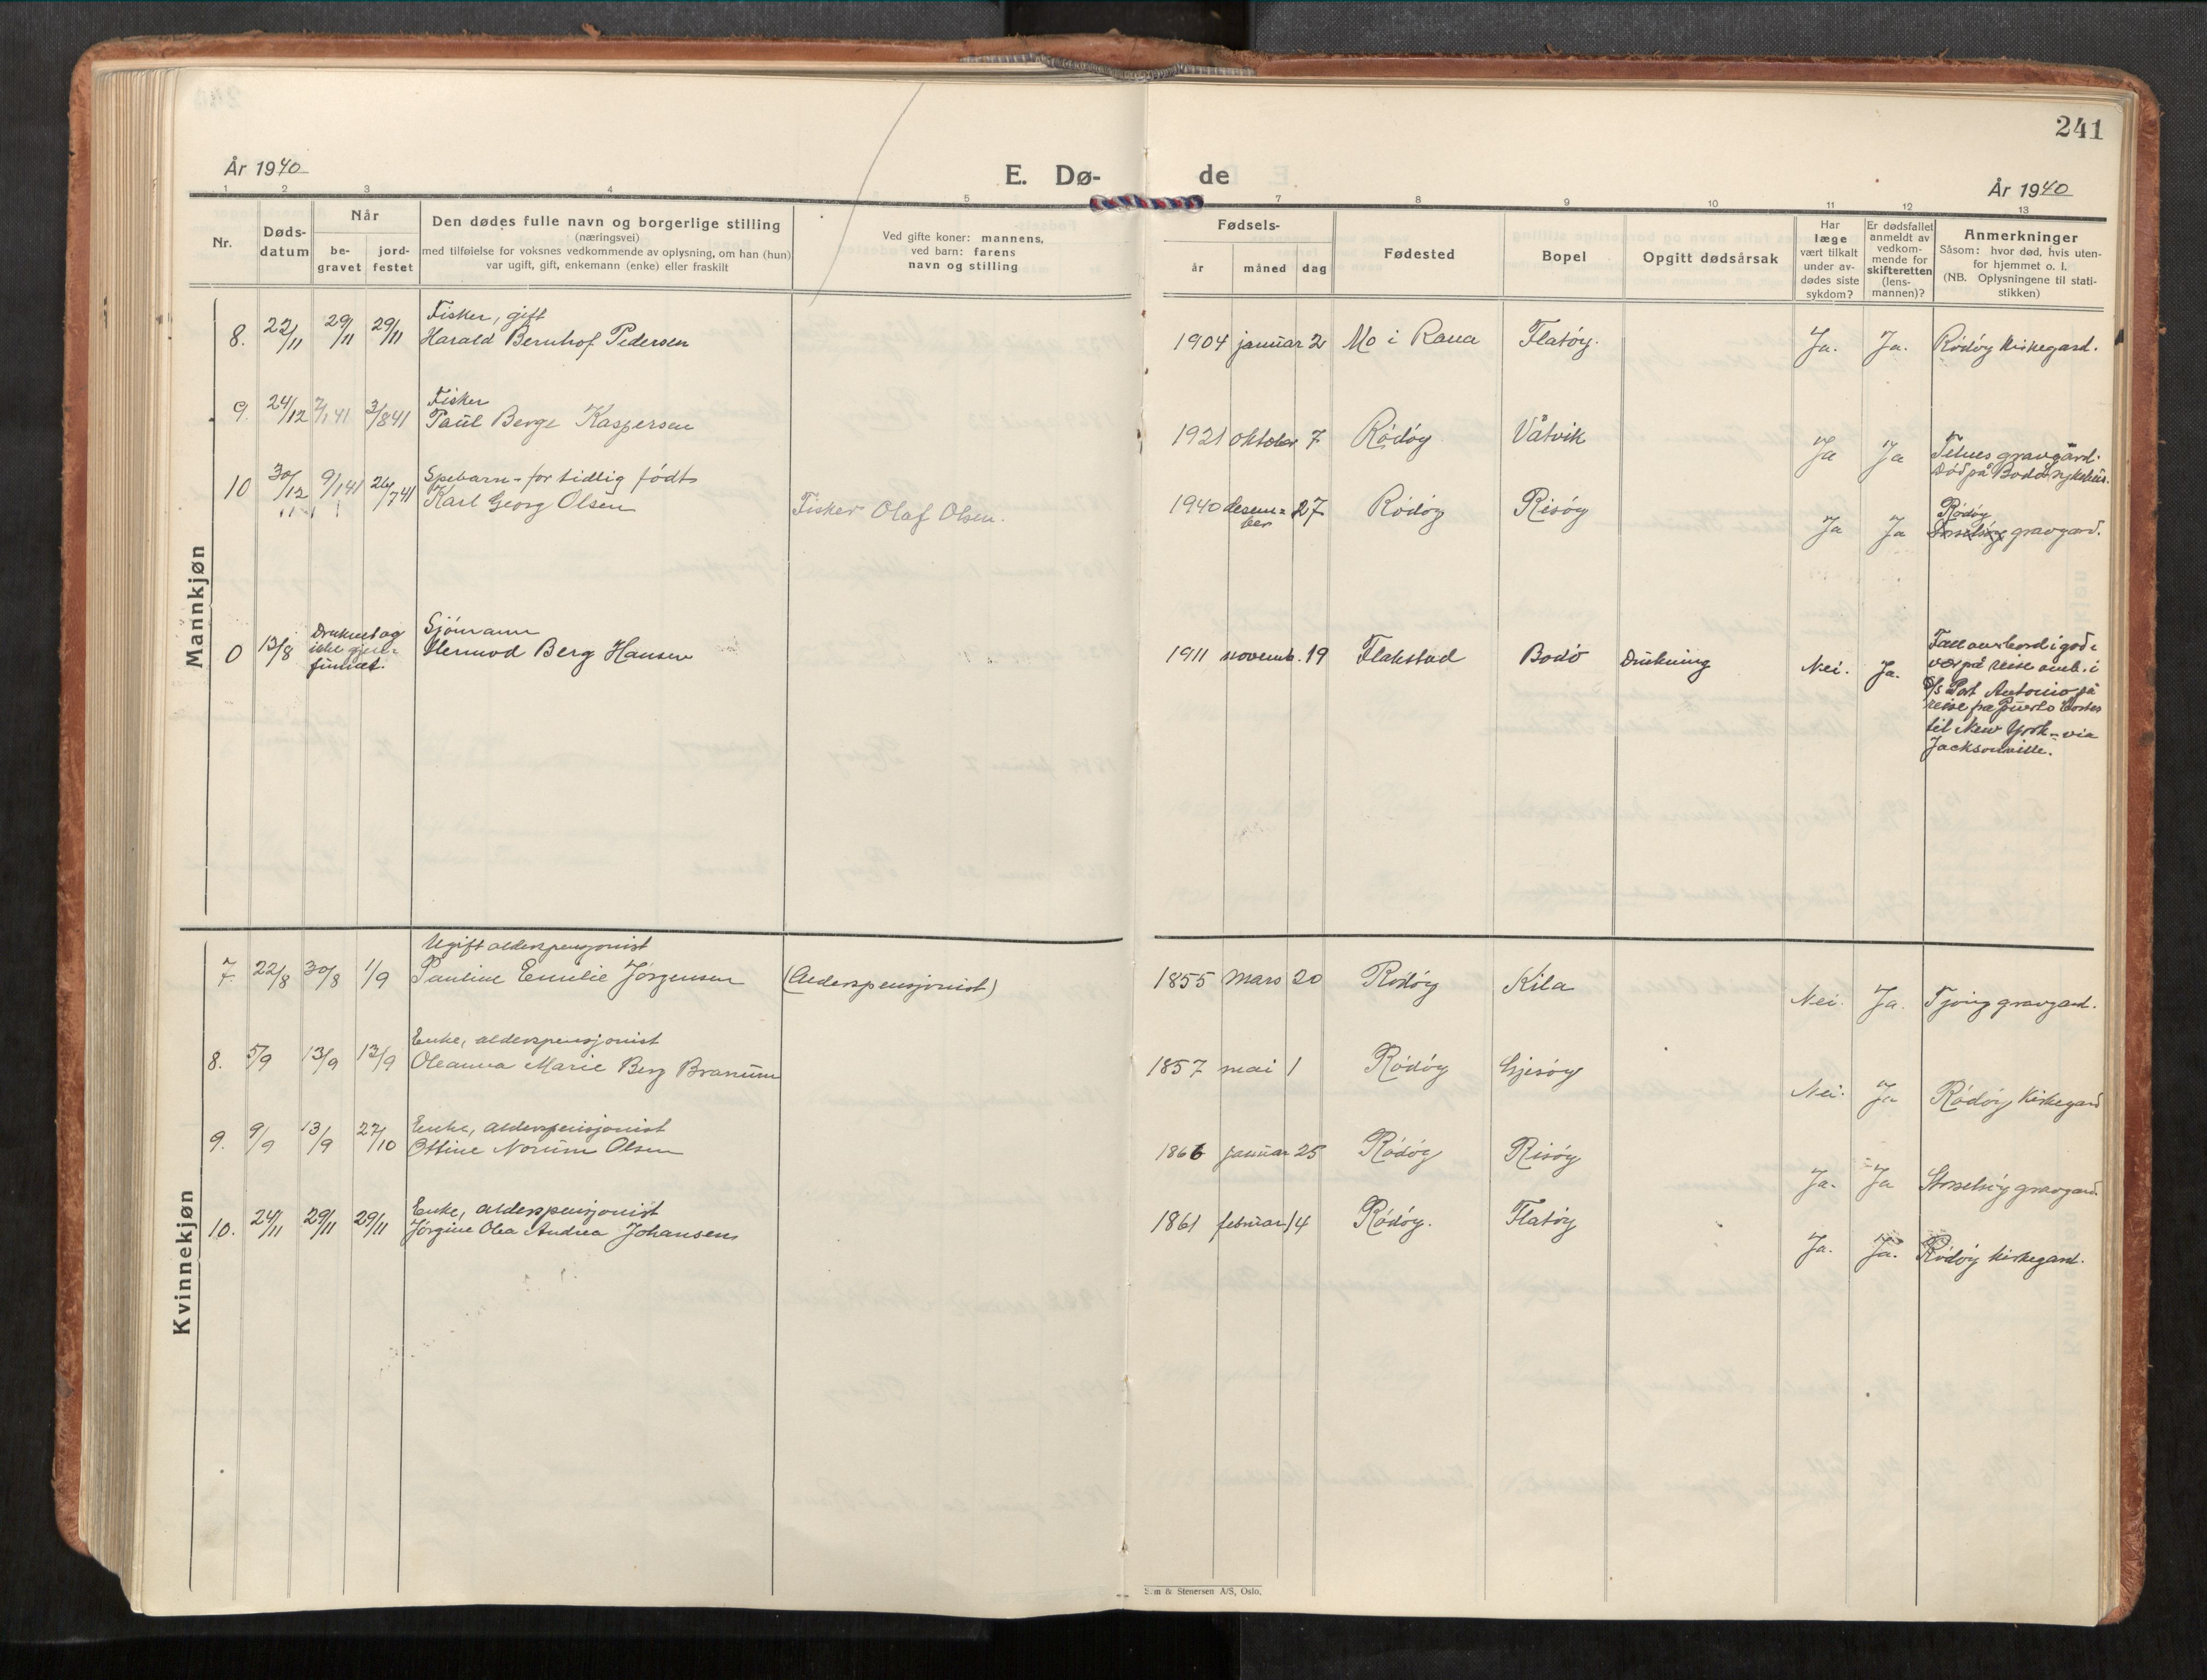 241
År 1940
E. Dø- de
År 1940
1 2 3 4 5 7 8 9 10 11 12 13
Nr.
Døds-
datum
Når
be-
gravet
jord-
festet
Den dødes fulle navn og borgerlige stilling
(næringsvei)
med tilføielse for voksnes vedkommende av oplysning, om han (hun)
var ugift, gift, enkemann (enke) eller fraskilt
Ved gifte koner: mannens,
ved barn: farens
navn og stilling
Fødsels-
år måned dag
Fødested
Bopel
Opgitt dødsårsak
Har
læge
vært tilkalt
under av-
dødes siste
sykdom?
Er dødsfallet
anmeldt av
vedkom-
mende for
skifteretten
(lens-
mannen)?
Anmerkninger
Såsom: hvor død, hvis uten-
for hjemmet o. l.
(NB. Oplysningene til stati-
stikken)
Mannkjøn
Fisker, gift
8. 22/11 29/11 29/11 Harald Bernhof Pedersen 1904 januar 2 Mo i Rana Flatöy. Ja. Ja. Rödöy kirkegard.
Fisker
9. 24/12 7/1 41 3/8 41 Paul Berge Kaspersen 1921 oktober 7 Rödöy Våtvik Ja Ja gravgård.
Död på Bodö sykehus.
Spebarn - for tidlig födt
10 30/12 9/1 41 26/7 41 Karl Georg Olsen Fisker Olaf Olsen. 1940 desem=
ber 27 Rödöy Risöy Ja Ja Rödöy
gravgard.
Druknet og
ikke gjen-
funnet.
Sjömann
0 13/8 Hermod Berg Hansen 1911 novemb. 19 Flakstad Bodö Drukning Nei. Ja.
Falt overbord i godt
vær på reise omb. i
S/S Port Antonio på
reise fra Puerto Cortes
til New York - via
Jacksonville.
Kvinnekjøn
Ugift alderspensjonist
7. 22/8 30/8 1/9 Pauline Emilie Jörgensen (Alderspensjonist) 1855 mars 20 Rödöy Kila Nei. Ja. Tjong gravgard.
Enke, alderspensjonist
8. 5/9 13/9 13/9 Oleanna Marie Berg Branum 1857 mai 1 Rödöy Gjesöy Nei. Ja Rödöy Kirkegard
Enke, alderspensjonist
9. 9/9 13/9 27/10 Ottine Norum Olsen 1866 januar 25 Rödöy Risöy Ja. Ja Storselsöy gravgard.
Enke, alderspensjonist
10. 24/11 29/11 29/11 Jörgine Olea Andrea Johansen 1861 februar 14 Rödöy. Flatöy Ja. Ja. Rödöy kirkegard.
Sem & Stenersen A/S, Oslo.